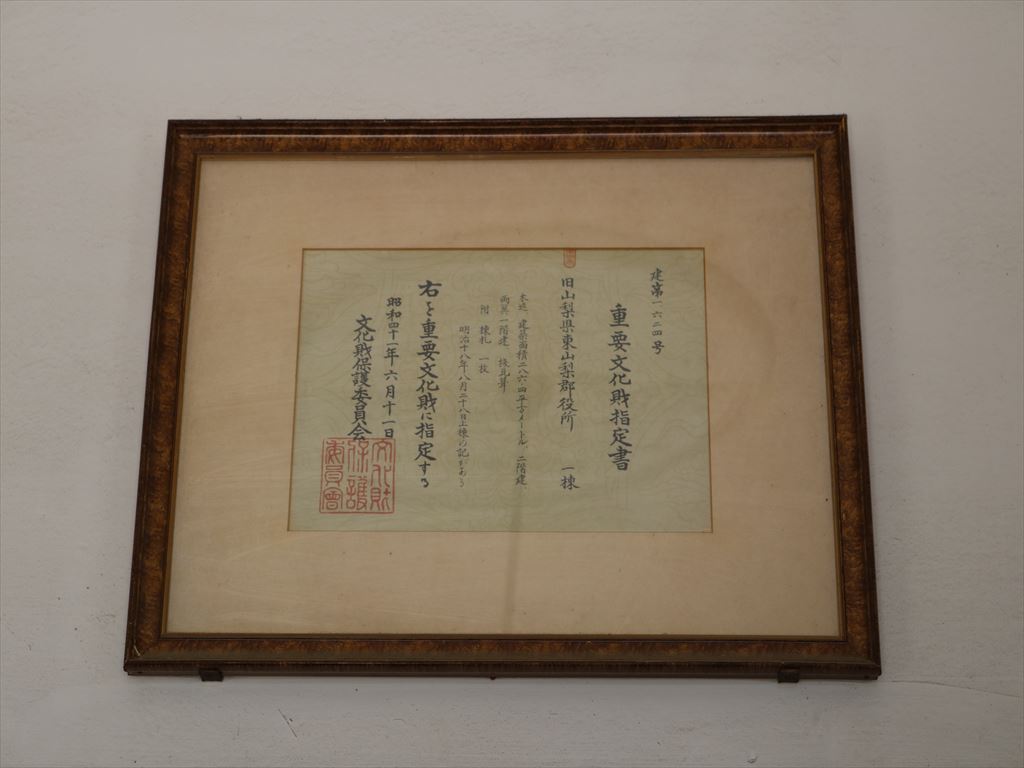 建第一六二四号
重要文化財指定書
旧山梨県東山梨郡役所　一棟
木造、建築面積二八六・四平方メートル、二階建、
両翼一階建、桟瓦葺
附　棟札　一枚
明治十八年八月二十八日上棟の記がある
右を重要文化財に指定する
昭和四十一年六月十一日
文化財保護委員会
文化財保護委員會